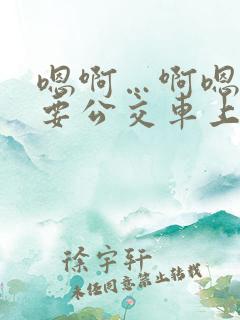 嗯啊…啊嗯
要公交车上
徐宇轩
未经同意禁止转载